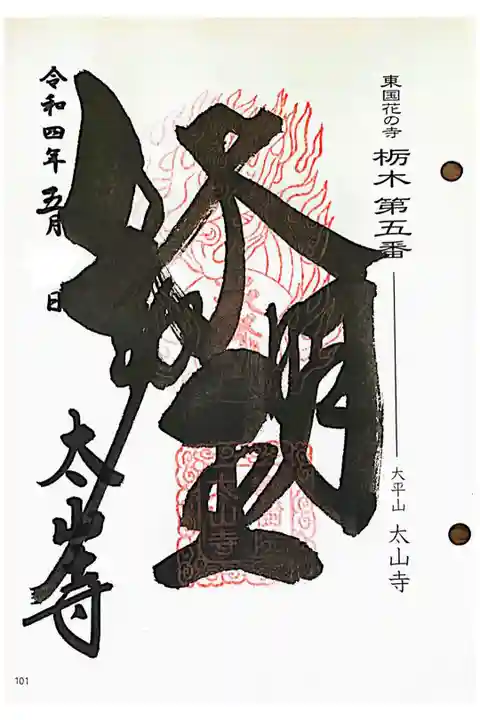 東国花の寺 栃木第五番 ── 大平山 太山寺
不動明王
令和四年 五月 日
太山寺
太山寺
101